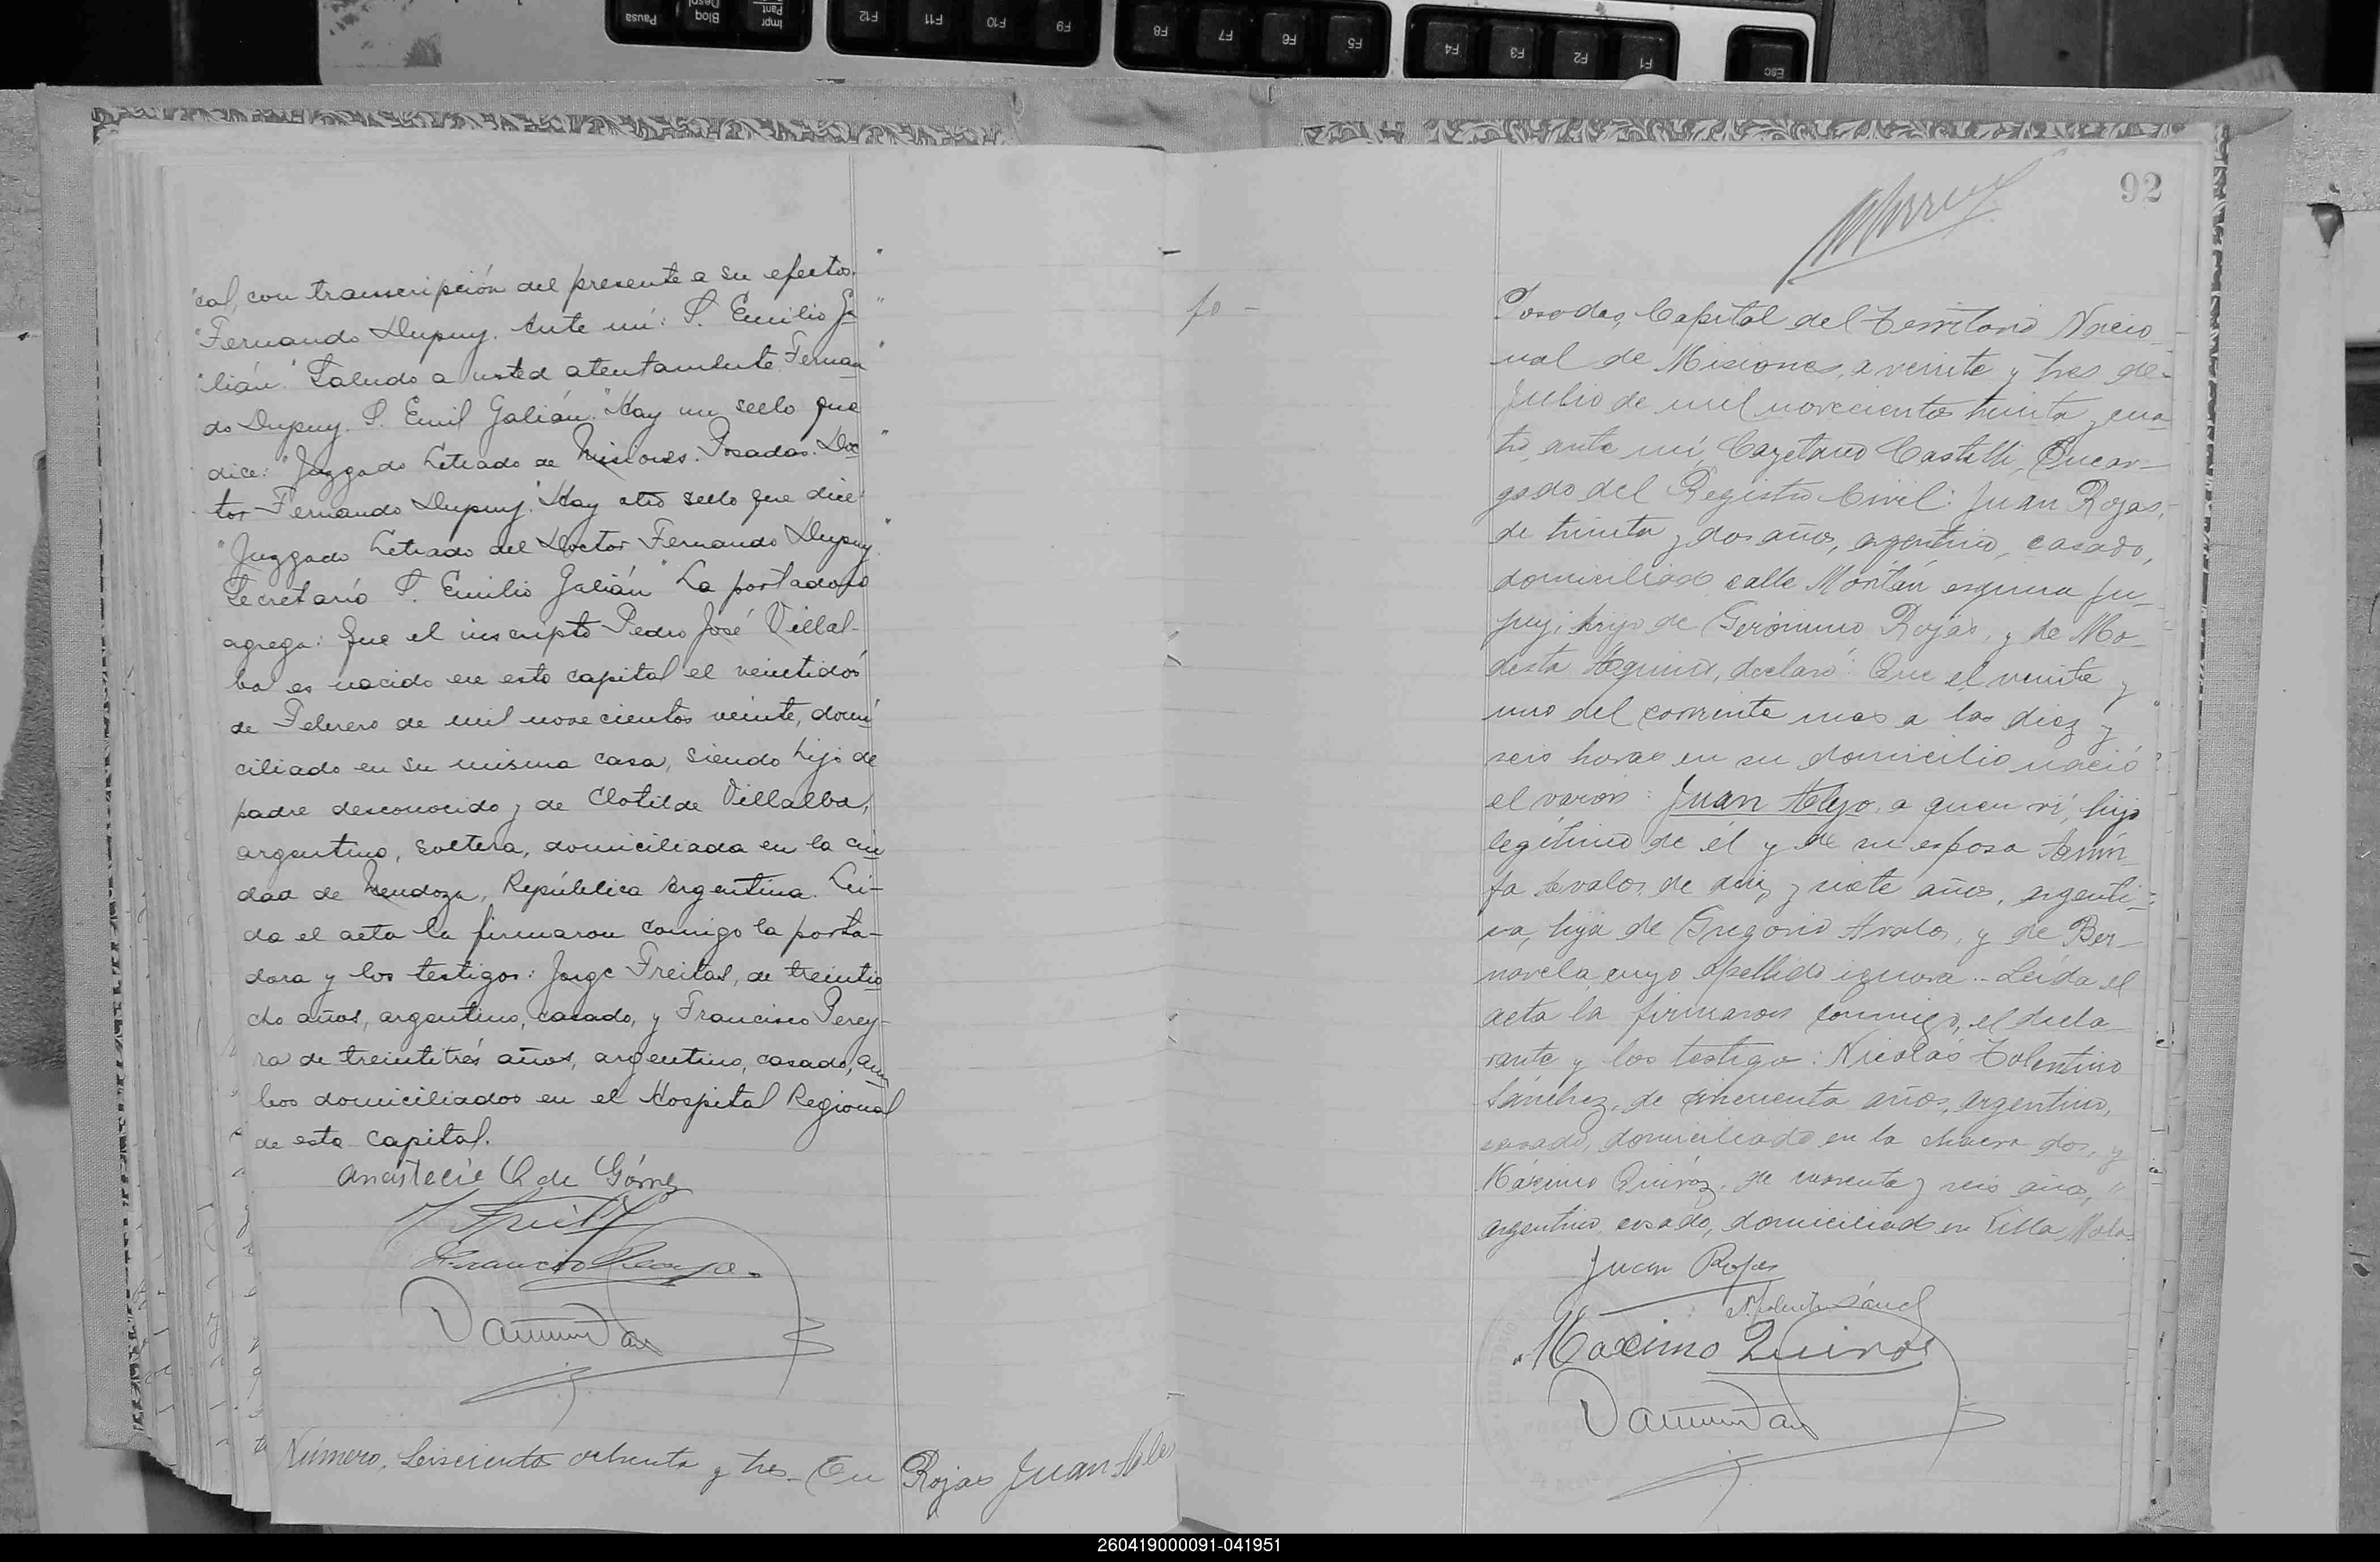 "cal, con transcripción del presente a su efecto."
"Fernando Dupuy. Ante mí: S. Emilio Ga
"lián." Saludo a usted atentamente Fernan
do Dupuy. S. Emil Galián." Hay un sello que
dice: "Juzgado Letrado de Misiones. Posadas. Doc
tor Fernando Dupuy." Hay otro sello que dice
"Juzgado Letrado del Doctor Fernando Dupuy.
Secretario S. Emilio Galián" La portadora
agrega: Que el inscripto Pedro José Villal-
ba es nacido en esta capital el veintidós
de Febrero de mil novecientos veinte, domi
ciliado en su misma casa, siendo hijo de
padre desconocido y de Clotilde Villalba,
argentina, soltera, domiciliada en la ciu
dad de Mendoza, República Argentina. Leí-
da el acta la firmaron conmigo la porta-
dora y los testigos: Jorge Freitas, de treintio
cho años, argentino, casado, y Francisco Perey-
ra de treintitrés años, argentino, casado, am
bos domiciliados en el Hospital Regional
de esta capital.
de Gómez
Francisco
Número, Seiscientos ochenta y tres_ En
Rojas Juan Ale
92
jo -
Posadas, Capital del Territorio Nacio-
nal de Misiones, a veinte y tres de
Julio de mil novecientos treinta y cua
tro, ante mí, Cayetano Castelli, Encar-
gado del Registro Civil: Juan Rojas,
de treinta y dos años, argentino, casado,
domiciliado calle esquina Ju-
juy, hijo de Gerónimo Rojas, y de Mo-
desta Aquino, declaró: Que el veinte y
uno del corriente mes a las diez y
seis horas en su domicilio nació
el varón: Juan Alejo, a quien ví, hijo
legítimo de él y de su esposa
Avalos, de diez y siete años, argenti-
na, hija de Gregorio Avalos, y de Ber-
novela, cuyo apellido ignora.- Leída el
acta la firmaron conmigo, el decla-
rante y los testigos: Nicolás Tolentino
Sánchez, de cincuenta años, argentino,
casado, domiciliado en la chacra dos, y
Máximo Quiróz, de cuarenta y seis años,
argentino, casado, domiciliado en Villa
Juan Rojas
Maximo Quiros
F12 F11 F10 F9 F8 F7 F6 F5 F4 F3 F2 F1 Esc
Pausa
260419000091-041951